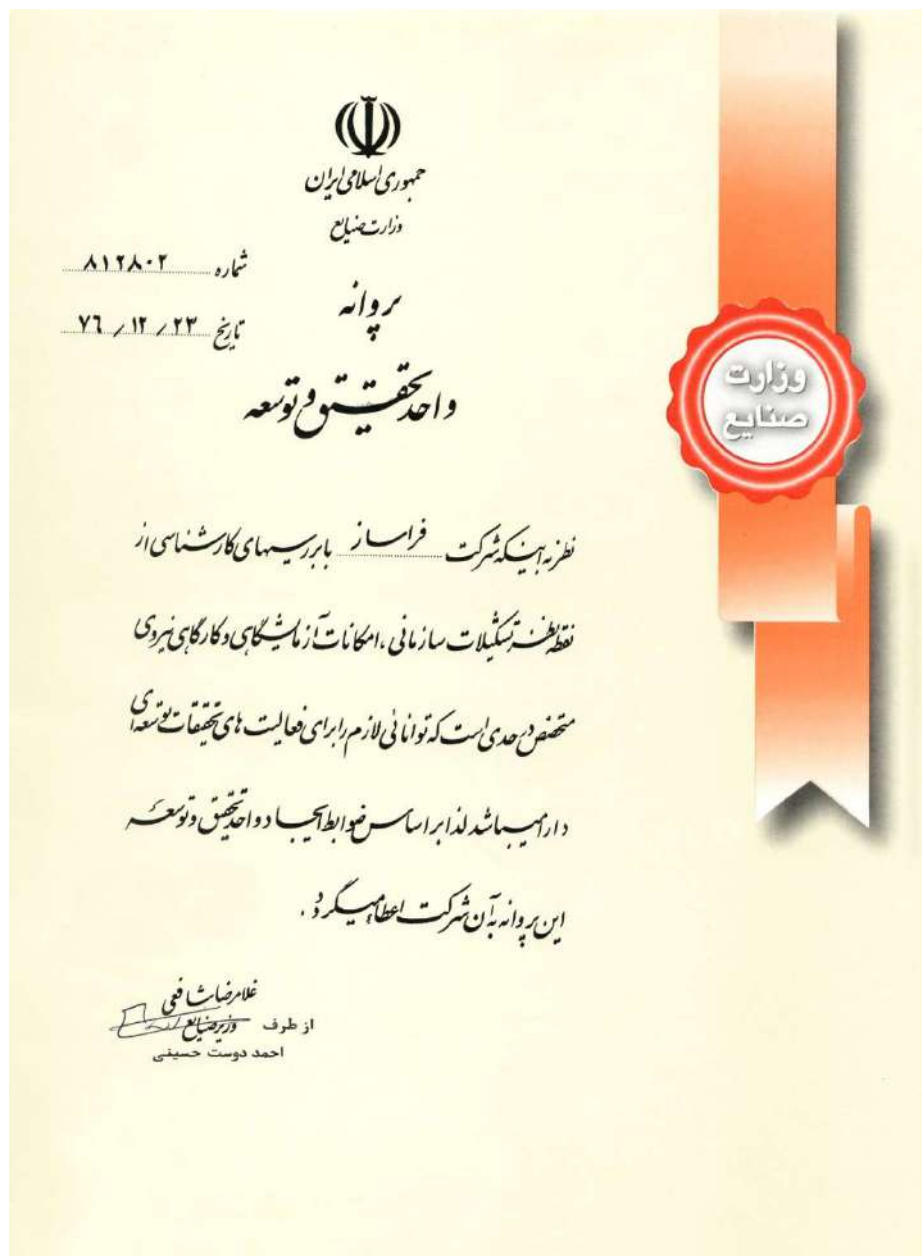 جمهوری اسلامی ایران
وزارت صنایع
شماره ۸۱۲۸۰۲
تاریخ ۷۶/۱۲/۲۳
پروانه
واحد تحقیق و توسعه
وزارت
صنایع
نظر به اینکه شرکت فراساز با بررسیهای کارشناسی از
نقطه نظر تشکیلات سازمانی، امکانات آزمایشگاهی و کارگاهی نیروی
متخصص در حدی است که توانائی لازم را برای فعالیت های تحقیقات توسعه ای
دارا میباشد لذا بر اساس ضوابط ایجاد واحد تحقیق و توسعه
این پروانه به آن شرکت اعطا میگردد.
غلامرضا شافعی
از طرف وزیر صنایع
احمد دوست حسینی